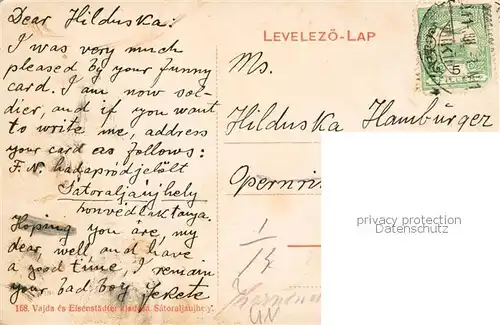 Dear Hilduska:
I was very much
pleased by your funny
card. I am now sol-
dier, and if you want
to write me, address
your card as follows:
F. N. hadapródjelölt
Sátoraljaujhely
honvédlaktanya.
Hoping you are, my
dear, well and have
a good time, I remain
your bad boy Fekete
168. Vajda és Eisenstädter kiadása, Sátoraljaujhely.
LEVELEZŐ-LAP
Ms.
Hilduska Hamburger
Opernri
1
14
5
privacy protection
www.ansichtskarten-lexikon.de